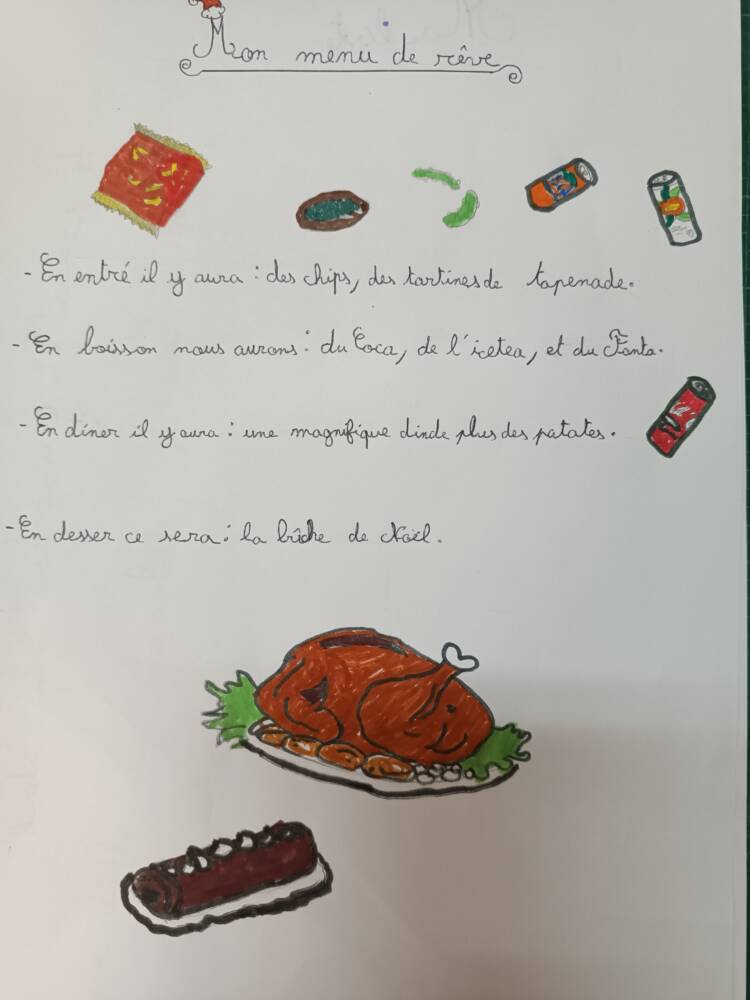 Mon menu de rêve
- En entré il y aura : des chips, des tartines de tapenade.
- En boisson nous aurons : du Coca, de l'icetea, et du Fanta.
- En dîner il y aura : une magnifique dinde plus des patates.
- En desser ce sera : la bûche de Noël.